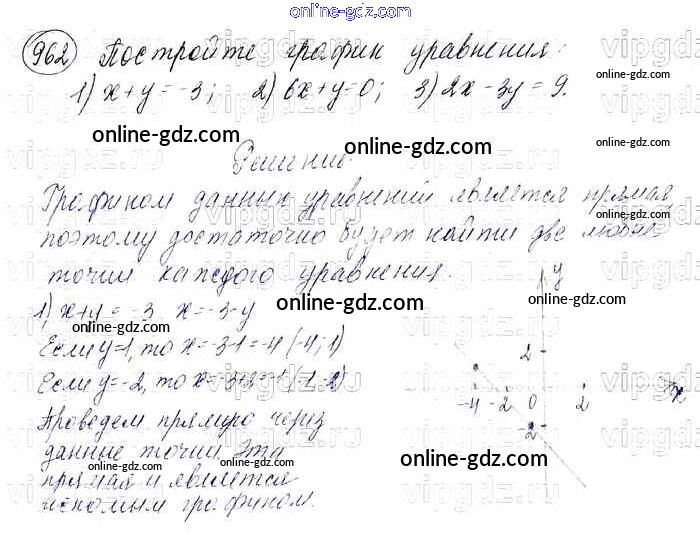 online-gdz.com
962 Постройте график уравнения:
1) x+y=-3; 2) 6x+y=0; 3) 2x-3y=9.
online-gdz.com
online-gdz.com
Решение.
Графиком данных уравнений является прямая
online-gdz.com
поэтому достаточно будет найти две любые
точки каждого уравнения.
1) x+y=-3 x=-3-y
online-gdz.com
online-gdz.com
Если y=1, то x=-3-1=-4 (-4;1)
Если y=-2, то x=-3+2=-1 (-1;-2)
online-gdz.com
Проведем прямую через
данные точки. Эта
online-gdz.com
online-gdz.com
прямая и является
искомым графиком.
y
2
-4 -2 0 2 x
-2
vipgdz.ru